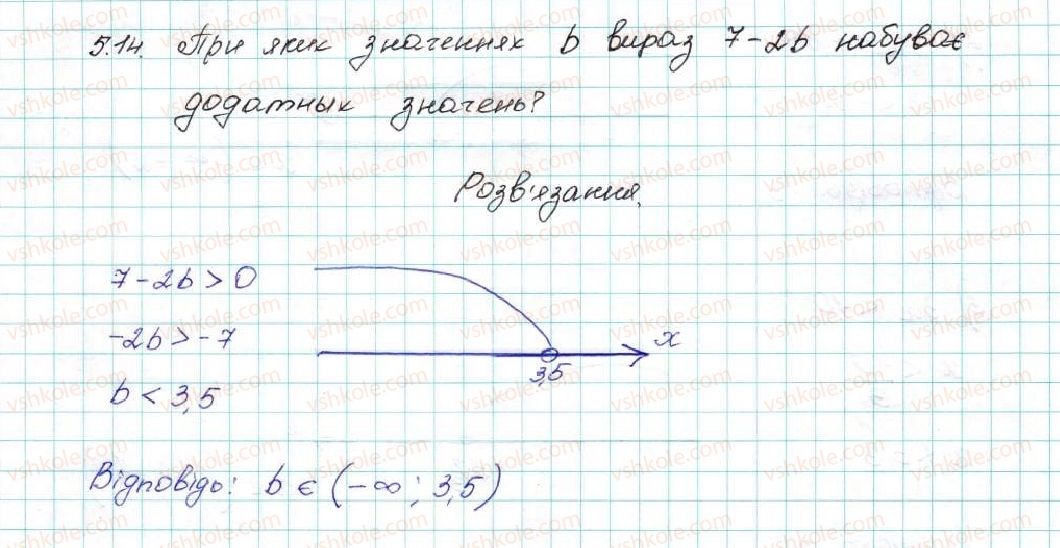 5.14. При яких значеннях b вираз 7-2b набуває
додатних значень?
Розв'язання.
7-2b>0
-2b>-7
b<3,5
x
3,5
Відповідь: b є (-∞; 3,5)